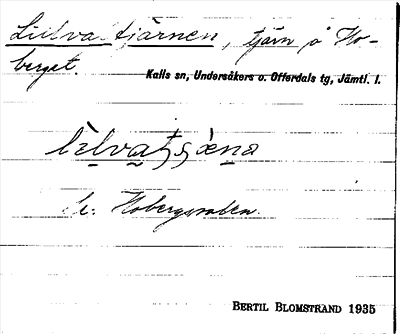 Lillvatjärnen, tjärn å Ho-
berget.
Kalls sn, Undersåkers o. Offerdals tg, Jämtl. l.
Se: Hobergsvalen.
BERTIL BLOMSTRAND 1935